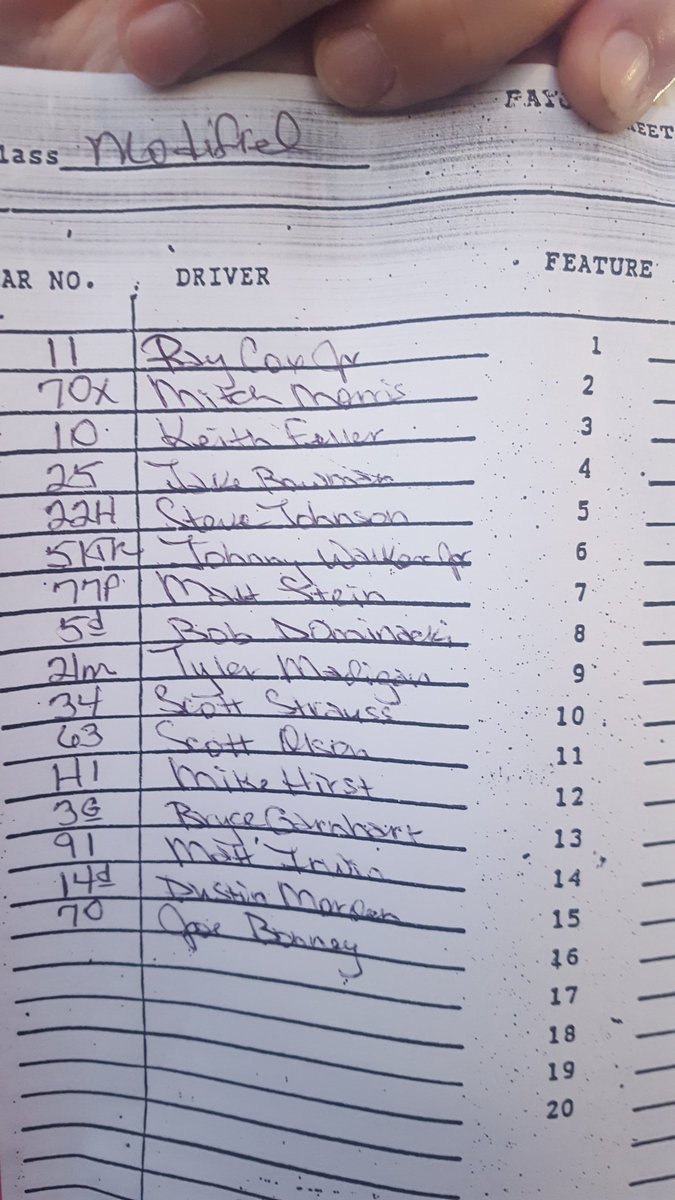 FAY
EET
lass Modified
AR NO. DRIVER FEATURE
11 Ray Cox Jr 1
70x Mitch Morris 2
10 Keith Feller 3
25 Jake Bowman 4
22H Steve Johnson 5
5KTK Johnny Walker Jr 6
77P Matt Stein 7
5d Bob Dominacki 8
21m Tyler Madigan 9
34 Scott Strauss 10
63 Scott Olson 11
H1 Mike Hirst 12
3G Bruce Garnhart 13
91 Matt Irwin 14
14d Dustin Morgan 15
70 Joe Bonney 16
17
18
19
20